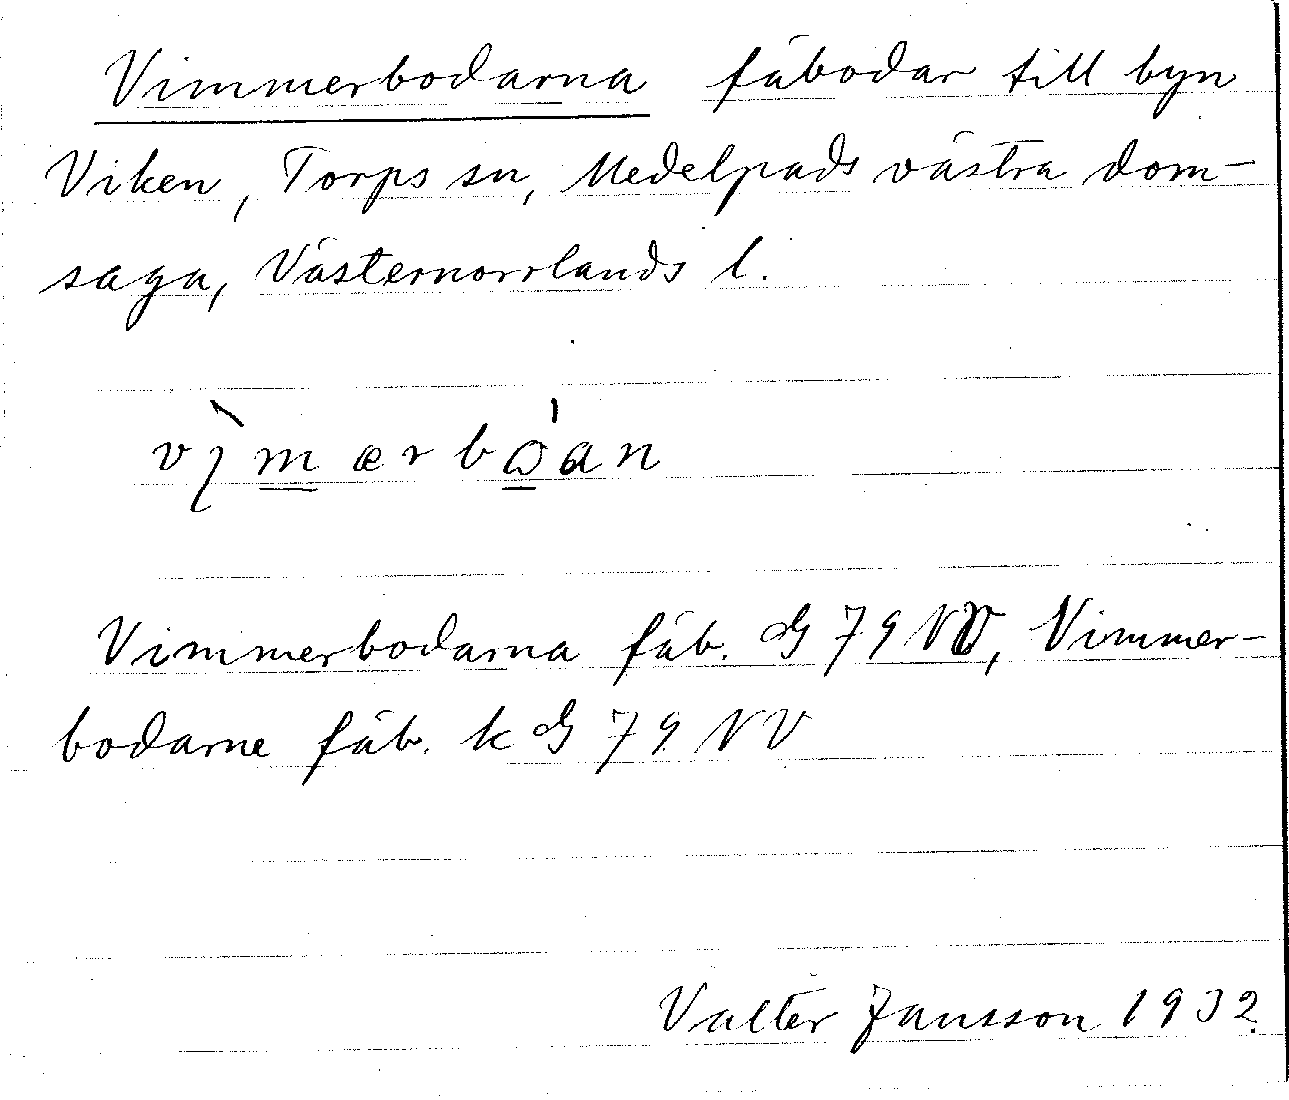 Vimmerbodarna fäbodar till byn
Viken, Torps sn, Medelpads västra dom-
saga, Västernorrlands l.
vı̀mærbɷ́an
Vimmerbodarna fäb. G 79 NV, Vimmer-
bodarne fäb. k G 79 NV
Valter Jansson 1932.